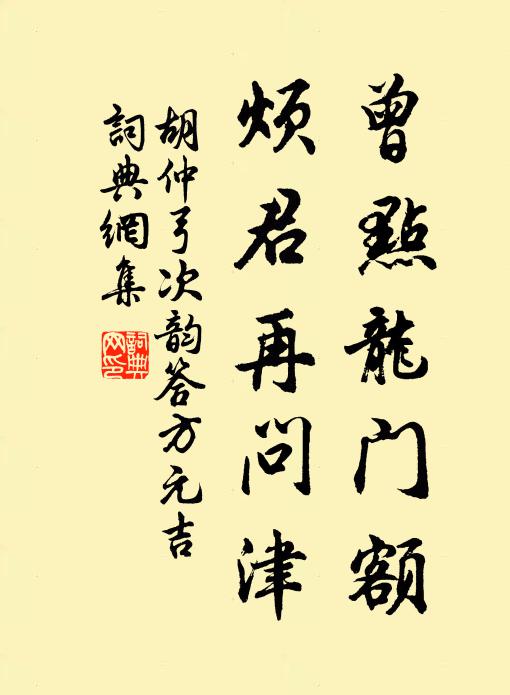 曾點龍门額
煩君再问津
胡仲弓次韵答方元吉
詞典網集
詞典网印